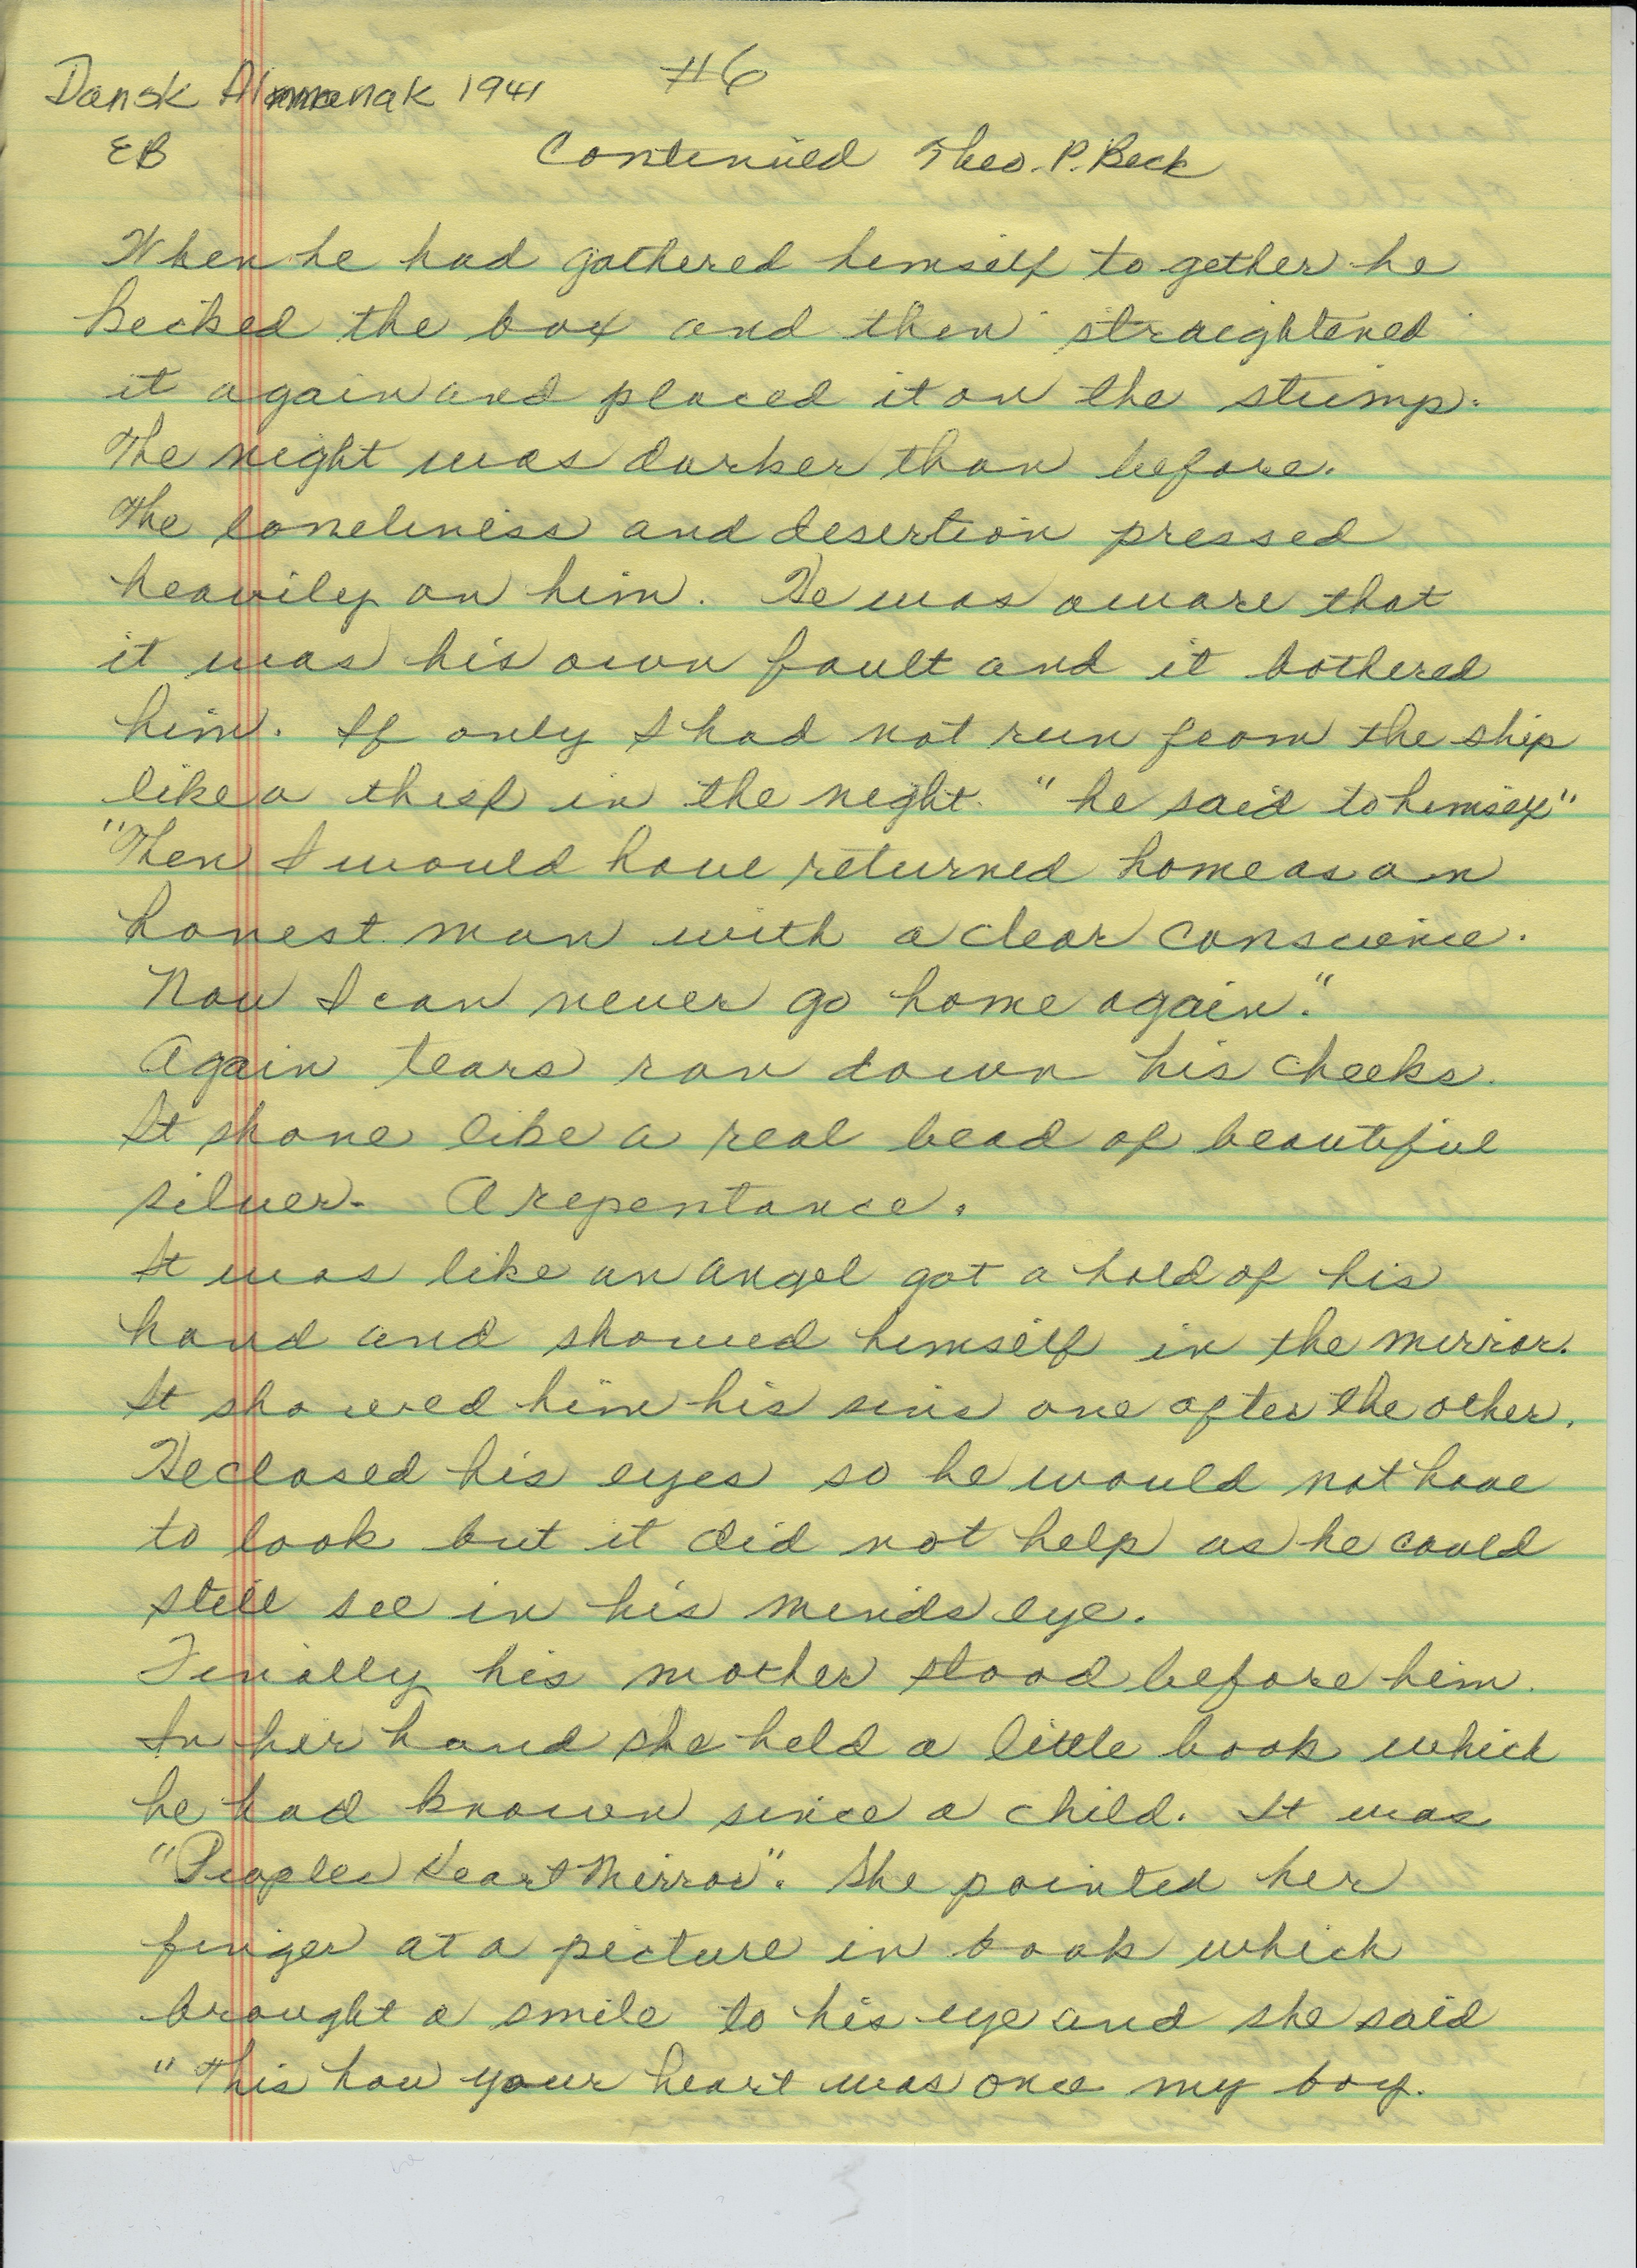 Dansk Almanak 1941 #6
EB Continued Theo. P. Beck
When he had gathered himself together he
kecked the box and then straightened
it again and placed it on the stump.
The night was darker than before.
The loneliness and desertion pressed
heavily on him. He was aware that
it was his own fault and it bothered
him. If only I had not run from the ship
like a thief in the night. "he said to himself"
"Then I would have returned home as a m
honest man with a clear conscience.
Now I can never go home again."
Again tears ran down his cheeks.
It shone like a real bead of beautiful
silver. A repentance.
It was like an angel got a hold of his
hand and showed himself in the mirror.
It showed him his sins one after the other.
He closed his eyes so he would not have
to look but it did not help as he could
still see in his minds eye.
Finally his mother stood before him.
In her hand she held a little book which
he had known since a child. It was
"Peoples Heart Mirror". She pointed her
finger at a picture in book which
brought a smile to his eye and she said
"This how your heart was once my boy.